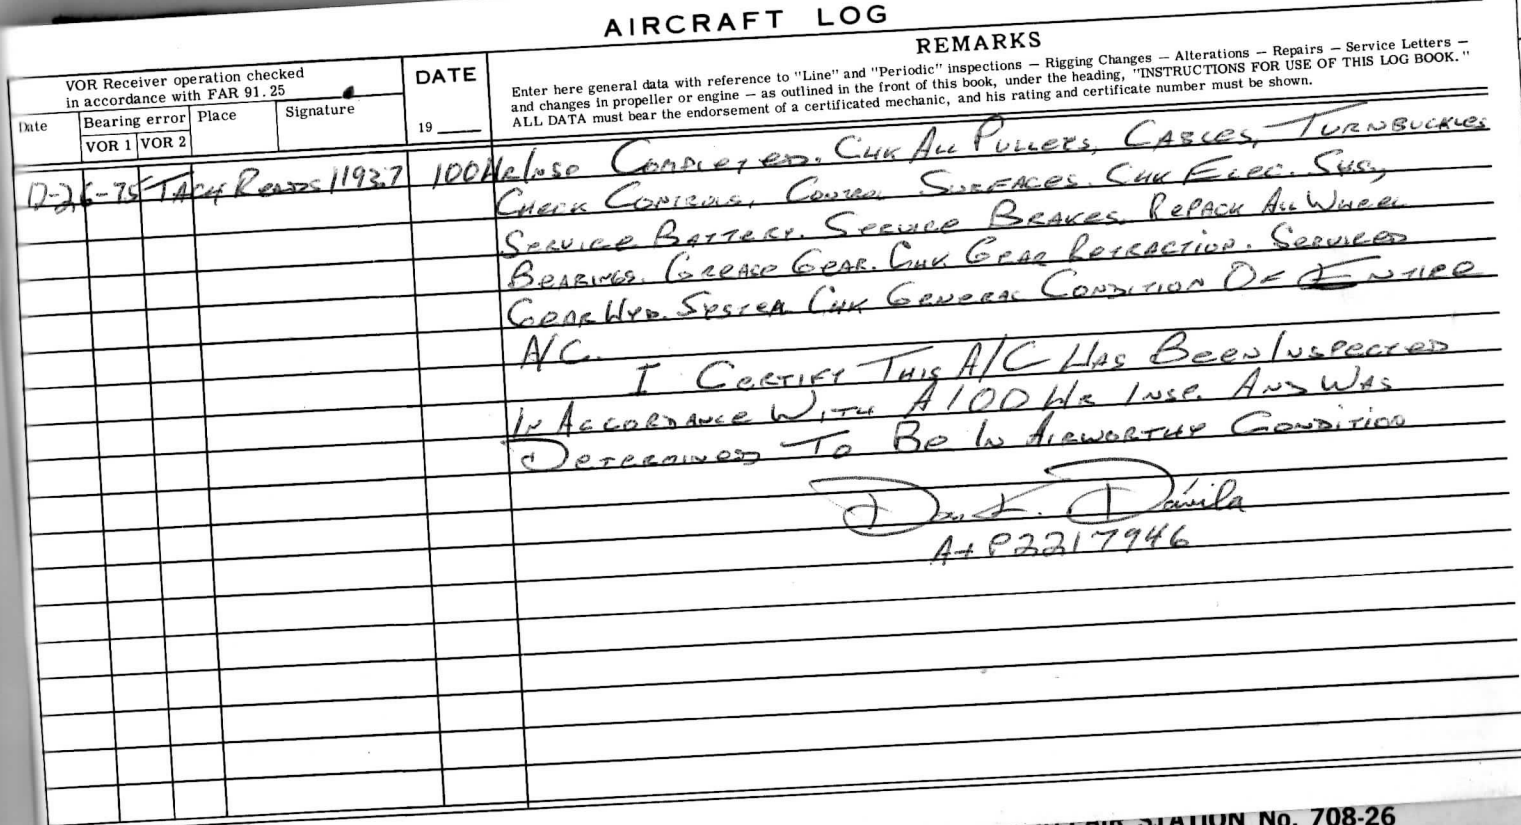 AIRCRAFT LOG
REMARKS
VOR Receiver operation checked
in accordance with FAR 91.25
DATE
Enter here general data with reference to "Line" and "Periodic" inspections — Rigging Changes — Alterations — Repairs — Service Letters —
and changes in propeller or engine — as outlined in the front of this book, under the heading, "INSTRUCTIONS FOR USE OF THIS LOG BOOK."
ALL DATA must bear the endorsement of a certificated mechanic, and his rating and certificate number must be shown.
Date
Bearing error
Place
Signature
VOR 1
VOR 2
19
12-26-75 TACH READS 1193.7 100 HR INSP COMPLETED. CHK ALL PULLEYS, CABLES, TURNBUCKLES
CHECK CONTROLS, CONTROL SURFACES. CHK ELEC. SYS,
SERVICE BATTERY. SERVICE BRAKES. REPACK ALL WHEEL
BEARINGS. GREASE GEAR. CHK GEAR RETRACTION. SERVICED
GEAR HYD. SYSTEM CHK GENERAL CONDITION OF ENTIRE
A/C.
I CERTIFY THIS A/C HAS BEEN INSPECTED
IN ACCORDANCE WITH A 100 HR INSP. AND WAS
DETERMINED TO BE IN AIRWORTHY CONDITION
Dávila
A+P2217946
STATION No. 708-26